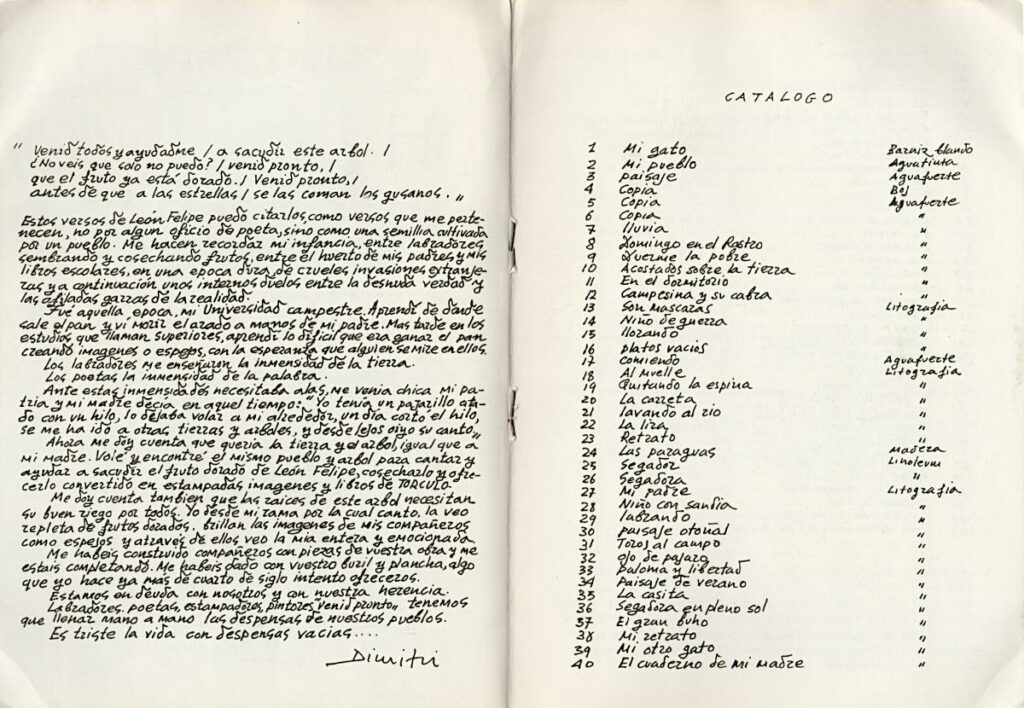 " Venid todos y ayudadme / a sacudir este arbol. /
¿No veis que solo no puedo? / venid pronto, /
que el fruto ya está dorado. / Venid pronto, /
antes de que a las estrellas / se las coman los gusanos. "
Estos versos de León Felipe puedo citarlos, como versos que me perte-
necen, no por algun oficio de poeta, sino como una semilla cultivada
por un pueblo. Me hacen recordar mi infancia, entre labradores,
sembrando y cosechando frutos, entre el huerto de mis padres y mis
libros escolares, en una epoca dura de crueles invasiones extranje-
ras y a continuación unos internos duelos entre la desnuda verdad y
las afiladas garras de la realidad.
Fué aquella, epoca, mi Universidad campestre. Aprendi de donde
sale el pan y vi morir el arado a manos de mi padre. Mas tarde en los
estudios que llaman superiores, aprendi lo dificil que era ganar el pan
creando imagenes o espejos, con la esperanza que alguien se mire en ellos.
Los labradores me enseñaron la inmensidad de la tierra.
Los poetas la inmensidad de la palabra.
Ante estas inmensidades necesitaba alas, me venia chica mi pa-
tria, y mi madre decia en aquel tiempo: "Yo tenía un pajarillo ata-
do con un hilo, lo dejaba volar a mi alrededor, un dia cortó el hilo,
se me ha ido a otras tierras y arboles, y desde lejos oigo su canto"
Ahora me doy cuenta que queria la tierra y el arbol, igual que a
mi madre. Volé y encontré el mismo pueblo y arbol para cantar y
ayudar a sacudir el fruto dorado de León Felipe, cosecharlo y ofre-
cerlo convertido en estampadas imagenes y libros de TORCULO.
Me doy cuenta tambien que las raices de este arbol necesitan
su buen riego por todos. Yo desde mi rama por la cual canto, la veo
repleta de frutos dorados, brillan las imagenes de mis compañeros
como espejos y através de ellos veo la mia entera y emocionada.
Me habeis construido compañeros con piezas de vuestra obra y me
estais completando. Me habeis dado con vuestro buril y plancha, algo
que yo hace ya mas de cuarto de siglo intento ofreceros.
Estamos en deuda con nosotros y con nuestra herencia.
Labradores, poetas, estampadores, pintores "venid pronto" tenemos
que llenar mano a mano las despensas de nuestros pueblos.
Es triste la vida con despensas vacias....
Dimitri
CATALOGO
1 Mi gato Barniz blando
2 Mi pueblo Aguatinta
3 paisaje Aguafuerte
4 Copia Boj
5 Copia Aguafuerte
6 Copia "
7 lluvia "
8 Domingo en el Rastro "
9 Duerme la pobre "
10 Acostados sobre la tierra "
11 En el dormitorio "
12 Campesina y su cabra "
13 Son mascaras Litografia
14 Niño de guerra "
15 llorando "
16 platos vacios "
17 Comiendo Aguafuerte
18 Al Muelle Litografia
19 Quitando la espina "
20 La carreta "
21 lavando al rio "
22 La lira "
23 Retrato "
24 Las paraguas Madera
25 Segador Linoleum
26 Segadora "
27 Mi padre Litografia
28 Niño con sandia "
29 labrando "
30 paisaje otoñal "
31 Toros al campo "
32 ojo de pajaro "
33 Paloma y libertad "
34 Paisaje de verano "
35 La casita "
36 Segadora en pleno sol "
37 El gran buho "
38 Mi retrato "
39 Mi otro gato "
40 El cuaderno de mi madre "